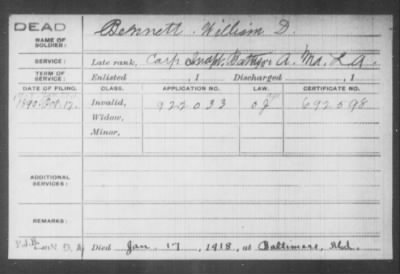 DEAD
NAME OF SOLDIER: Bennett, William D.
SERVICE: Late rank, Corp Snow's Battery A. Md. L. A.
TERM OF SERVICE: Enlisted , 1 Discharged , 1
DATE OF FILING. CLASS. APPLICATION NO. LAW. CERTIFICATE NO.
1890. Oct. 17. Invalid, 922033 692598
Widow,
Minor,
ADDITIONAL SERVICES:
REMARKS:
Died Jan. 17, 1918, at Baltimore, Md.